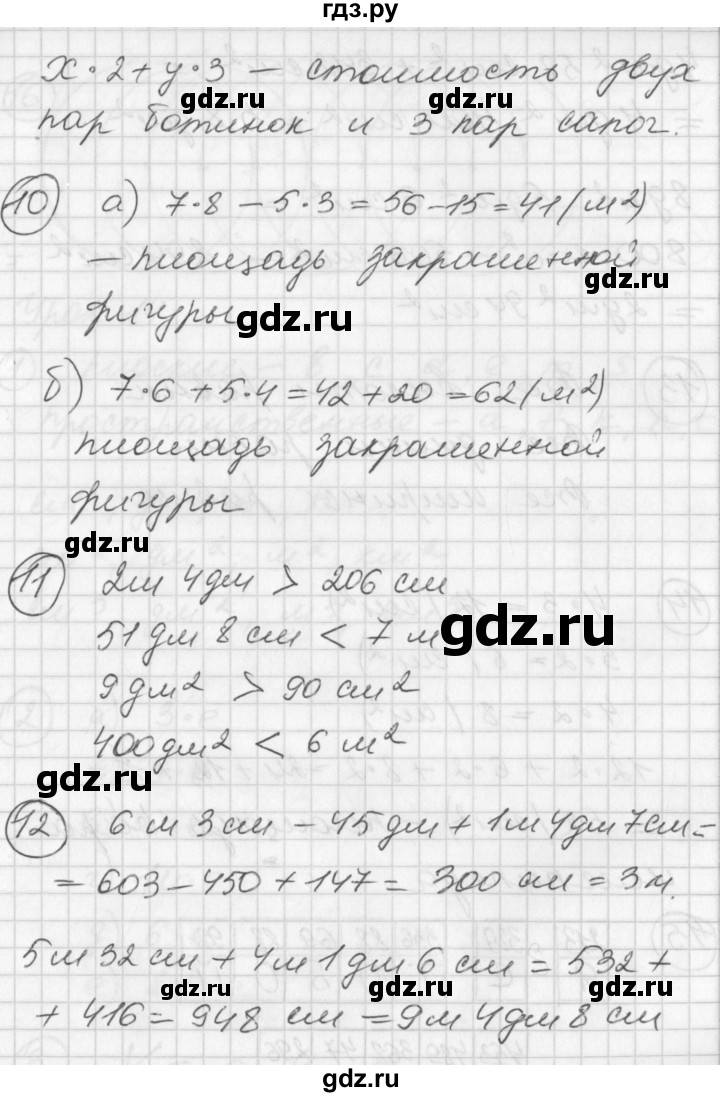 гдз.ру
x·2+y·3 — стоимость двух
gdz.ru gdz.ru
пар ботинок и 3 пар сапог.
10 а) 7·8 – 5·3 = 56 – 15 = 41 (м²)
— площадь закрашенной
gdz.ru
фигуры
gdz.ru
б) 7·6 + 5·4 = 42 + 20 = 62 (м²)
площадь закрашенной
фигуры
gdz.ru
11 2м 4дм > 206 см
51 дм 8 см < 7 м
gdz.ru
9 дм² > 90 см²
400 дм² < 6 м²
gdz.ru
12 6 м 3 см – 45 дм + 1 м 4 дм 7 см =
= 603 – 450 + 147 = 300 см = 3 м.
5 м 32 см + 4 м 1 дм 6 см = 532 +
gdz.ru gdz.ru gdz.ru
+ 416 = 948 см = 9 м 4 дм 8 см
gdz.ru